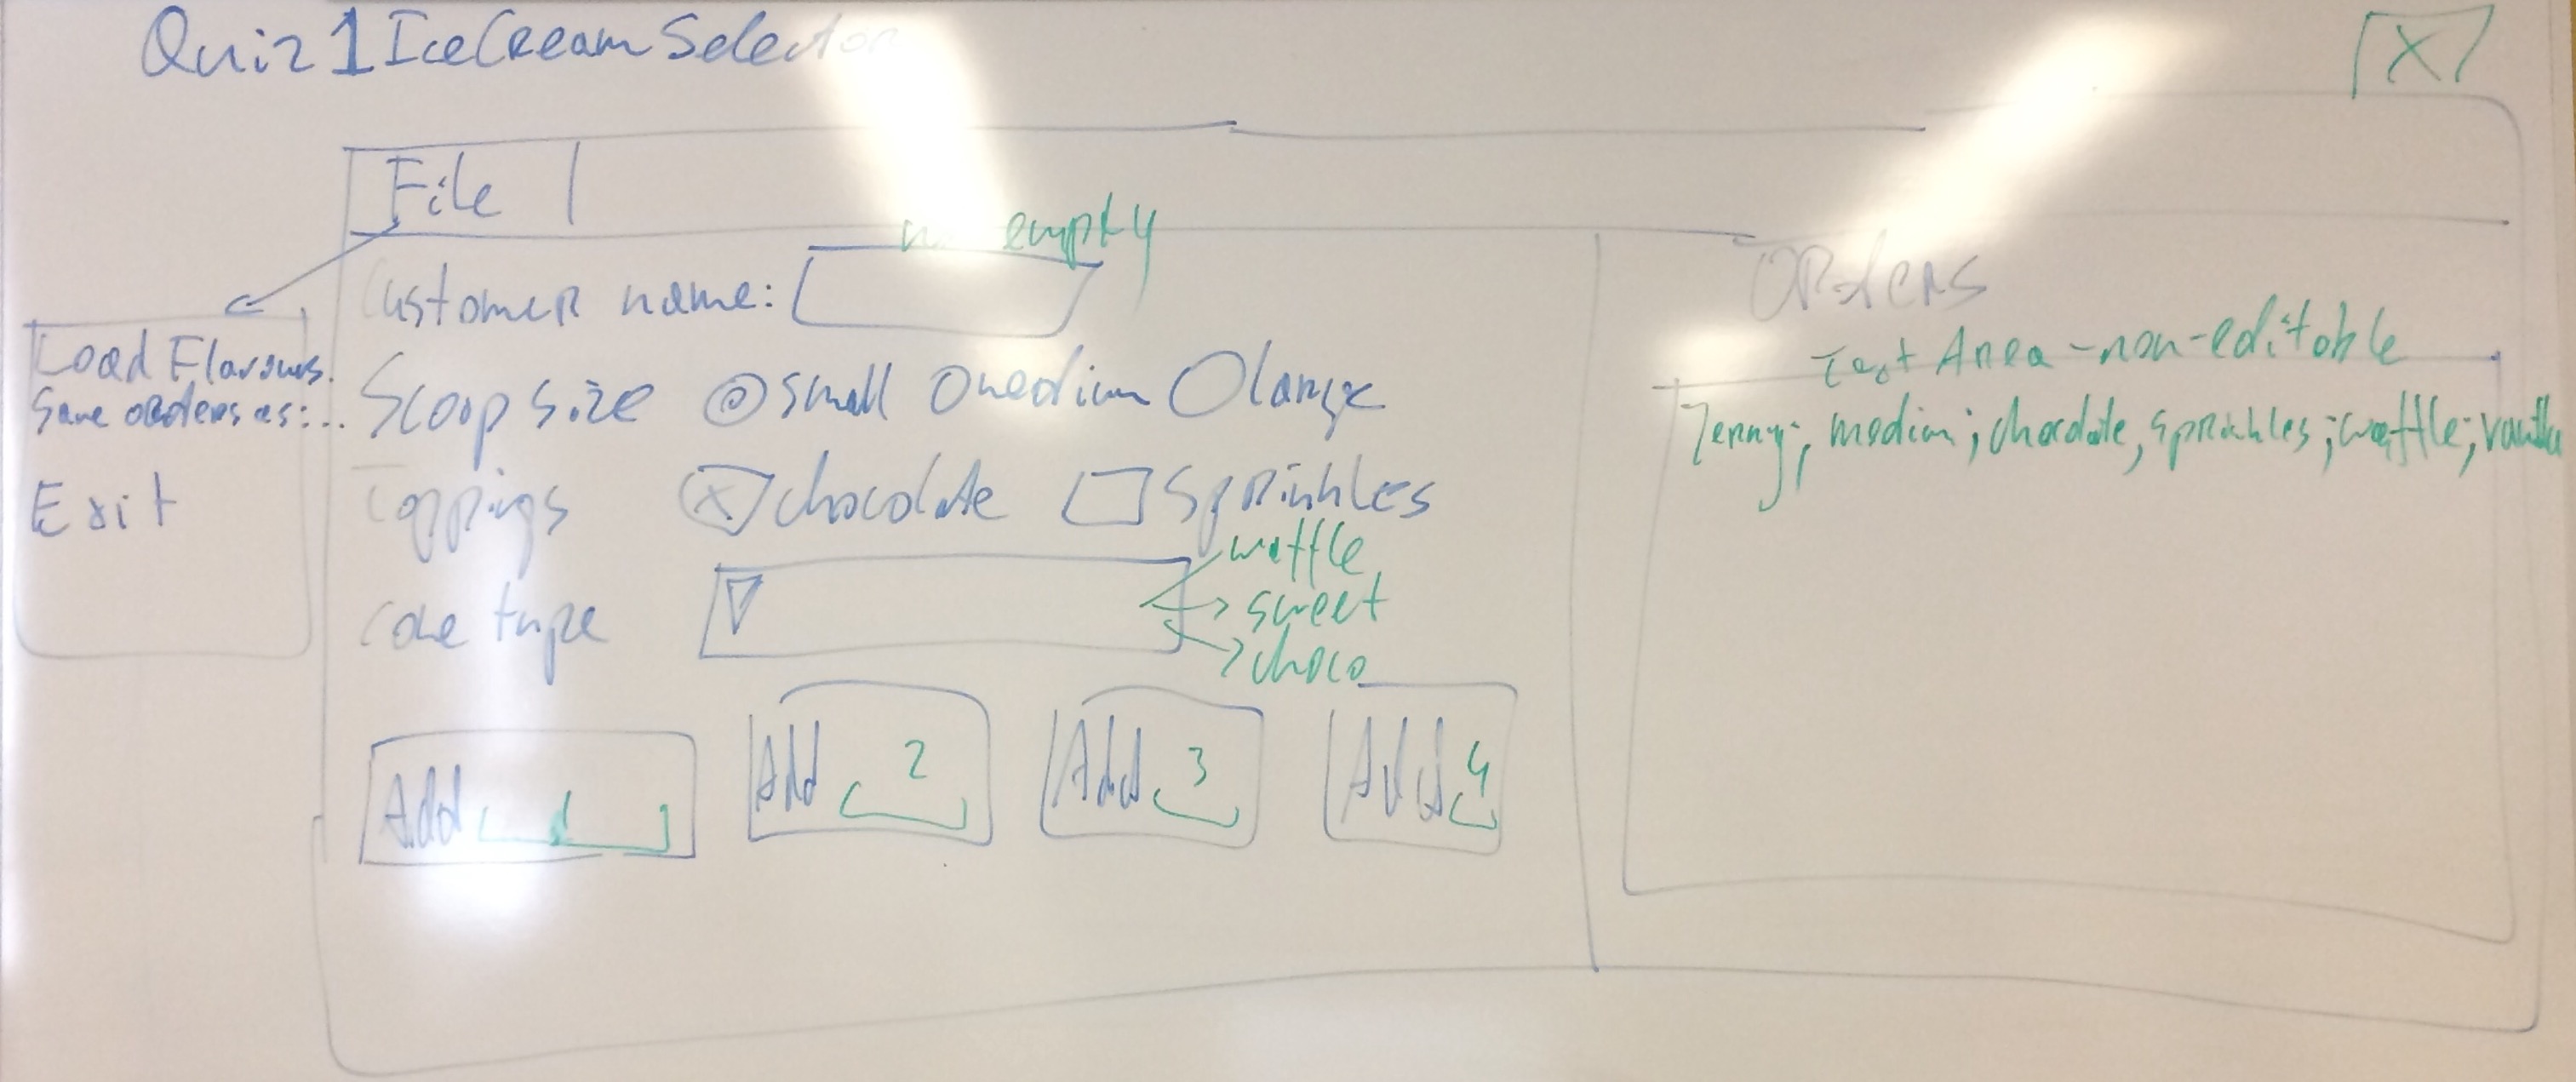 Quiz 1 IceCream Selector
X
File
not empty
Customer name:
Load Flavours
Save orders as:...
Exit
Scoop size small medium large
Toppings X chocolate Sprinkles
Cone type
waffle
sweet
choco
Add 1
Add 2
Add 3
Add 4
Orders
Text Area - non-editable
Jenny; medium; chocolate, sprinkles; waffle; vanilla